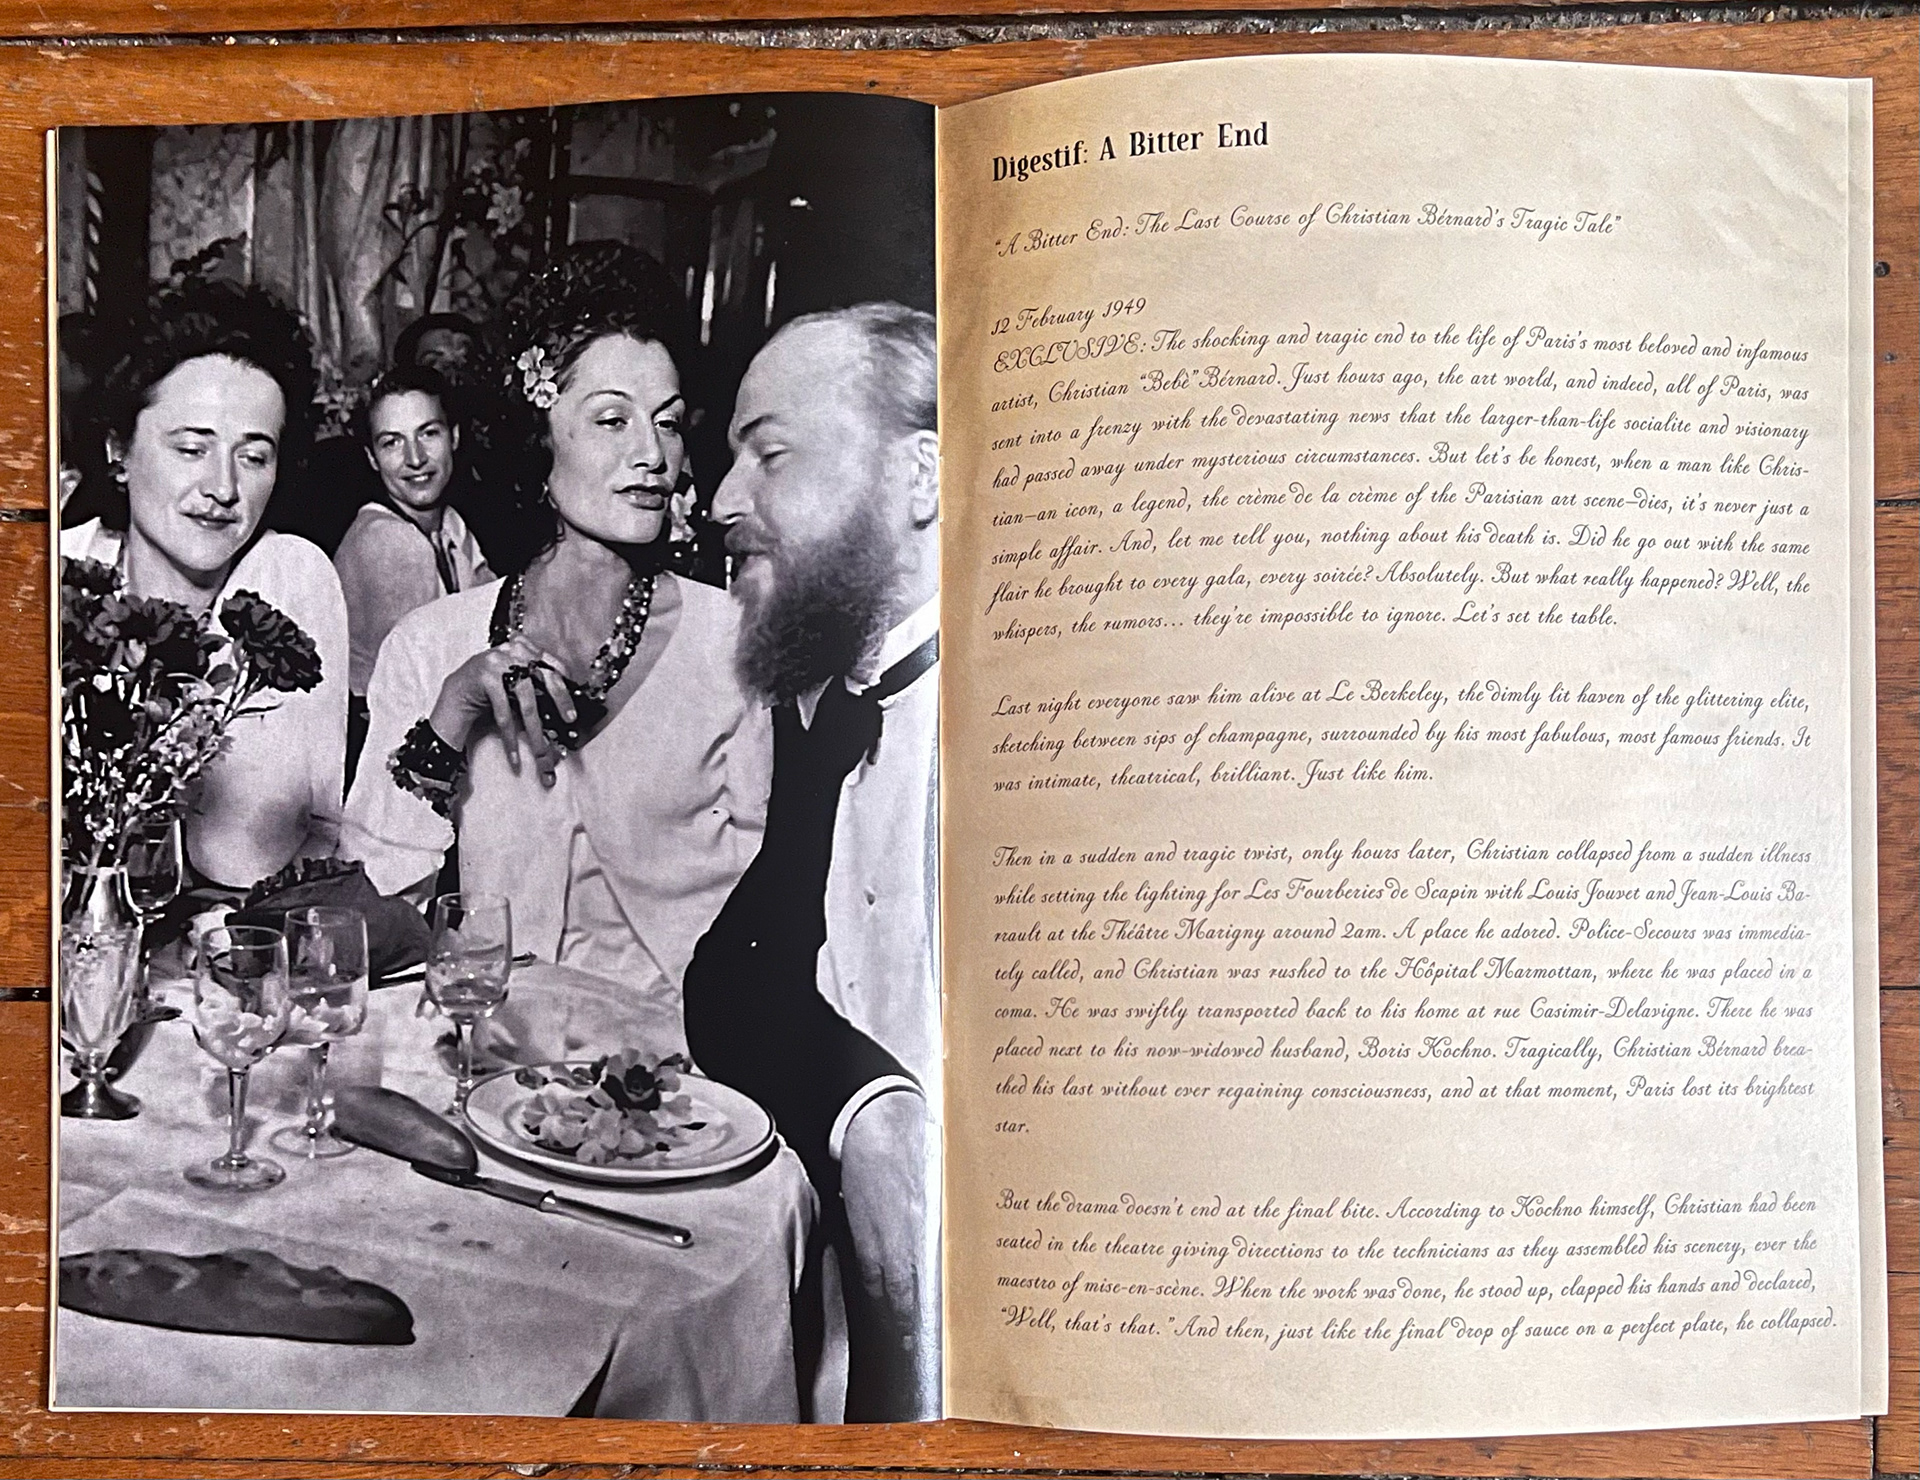 Digestif: A Bitter End
“A Bitter End: The Last Course of Christian Bérnard's Tragic Tale”
12 February 1949
EXCLUSIVE: The shocking and tragic end to the life of Paris's most beloved and infamous
artist, Christian “Bebè” Bérnard. Just hours ago, the art world, and indeed, all of Paris, was
sent into a frenzy with the devastating news that the larger-than-life socialite and visionary
had passed away under mysterious circumstances. But let's be honest, when a man like Chris-
tian—an icon, a legend, the crème de la crème of the Parisian art scene—dies, it's never just a
simple affair. And, let me tell you, nothing about his death is. Did he go out with the same
flair he brought to every gala, every soirée? Absolutely. But what really happened? Well, the
whispers, the rumors... they're impossible to ignore. Let's set the table.
Last night everyone saw him alive at Le Berkeley, the dimly lit haven of the glittering elite,
sketching between sips of champagne, surrounded by his most fabulous, most famous friends. It
was intimate, theatrical, brilliant. Just like him.
Then in a sudden and tragic twist, only hours later, Christian collapsed from a sudden illness
while setting the lighting for Les Fourberies de Scapin with Louis Jouvet and Jean-Louis Ba-
rrault at the Théâtre Marigny around 2am. A place he adored. Police-Secours was immedia-
tely called, and Christian was rushed to the Hôpital Marmottan, where he was placed in a
coma. He was swiftly transported back to his home at rue Casimir-Delavigne. There he was
placed next to his now-widowed husband, Boris Kochno. Tragically, Christian Bérnard brea-
thed his last without ever regaining consciousness, and at that moment, Paris lost its brightest
star.
But the drama doesn't end at the final bite. According to Kochno himself, Christian had been
seated in the theatre giving directions to the technicians as they assembled his scenery, ever the
maestro of mise-en-scène. When the work was done, he stood up, clapped his hands and declared,
“Well, that's that.” And then, just like the final drop of sauce on a perfect plate, he collapsed.